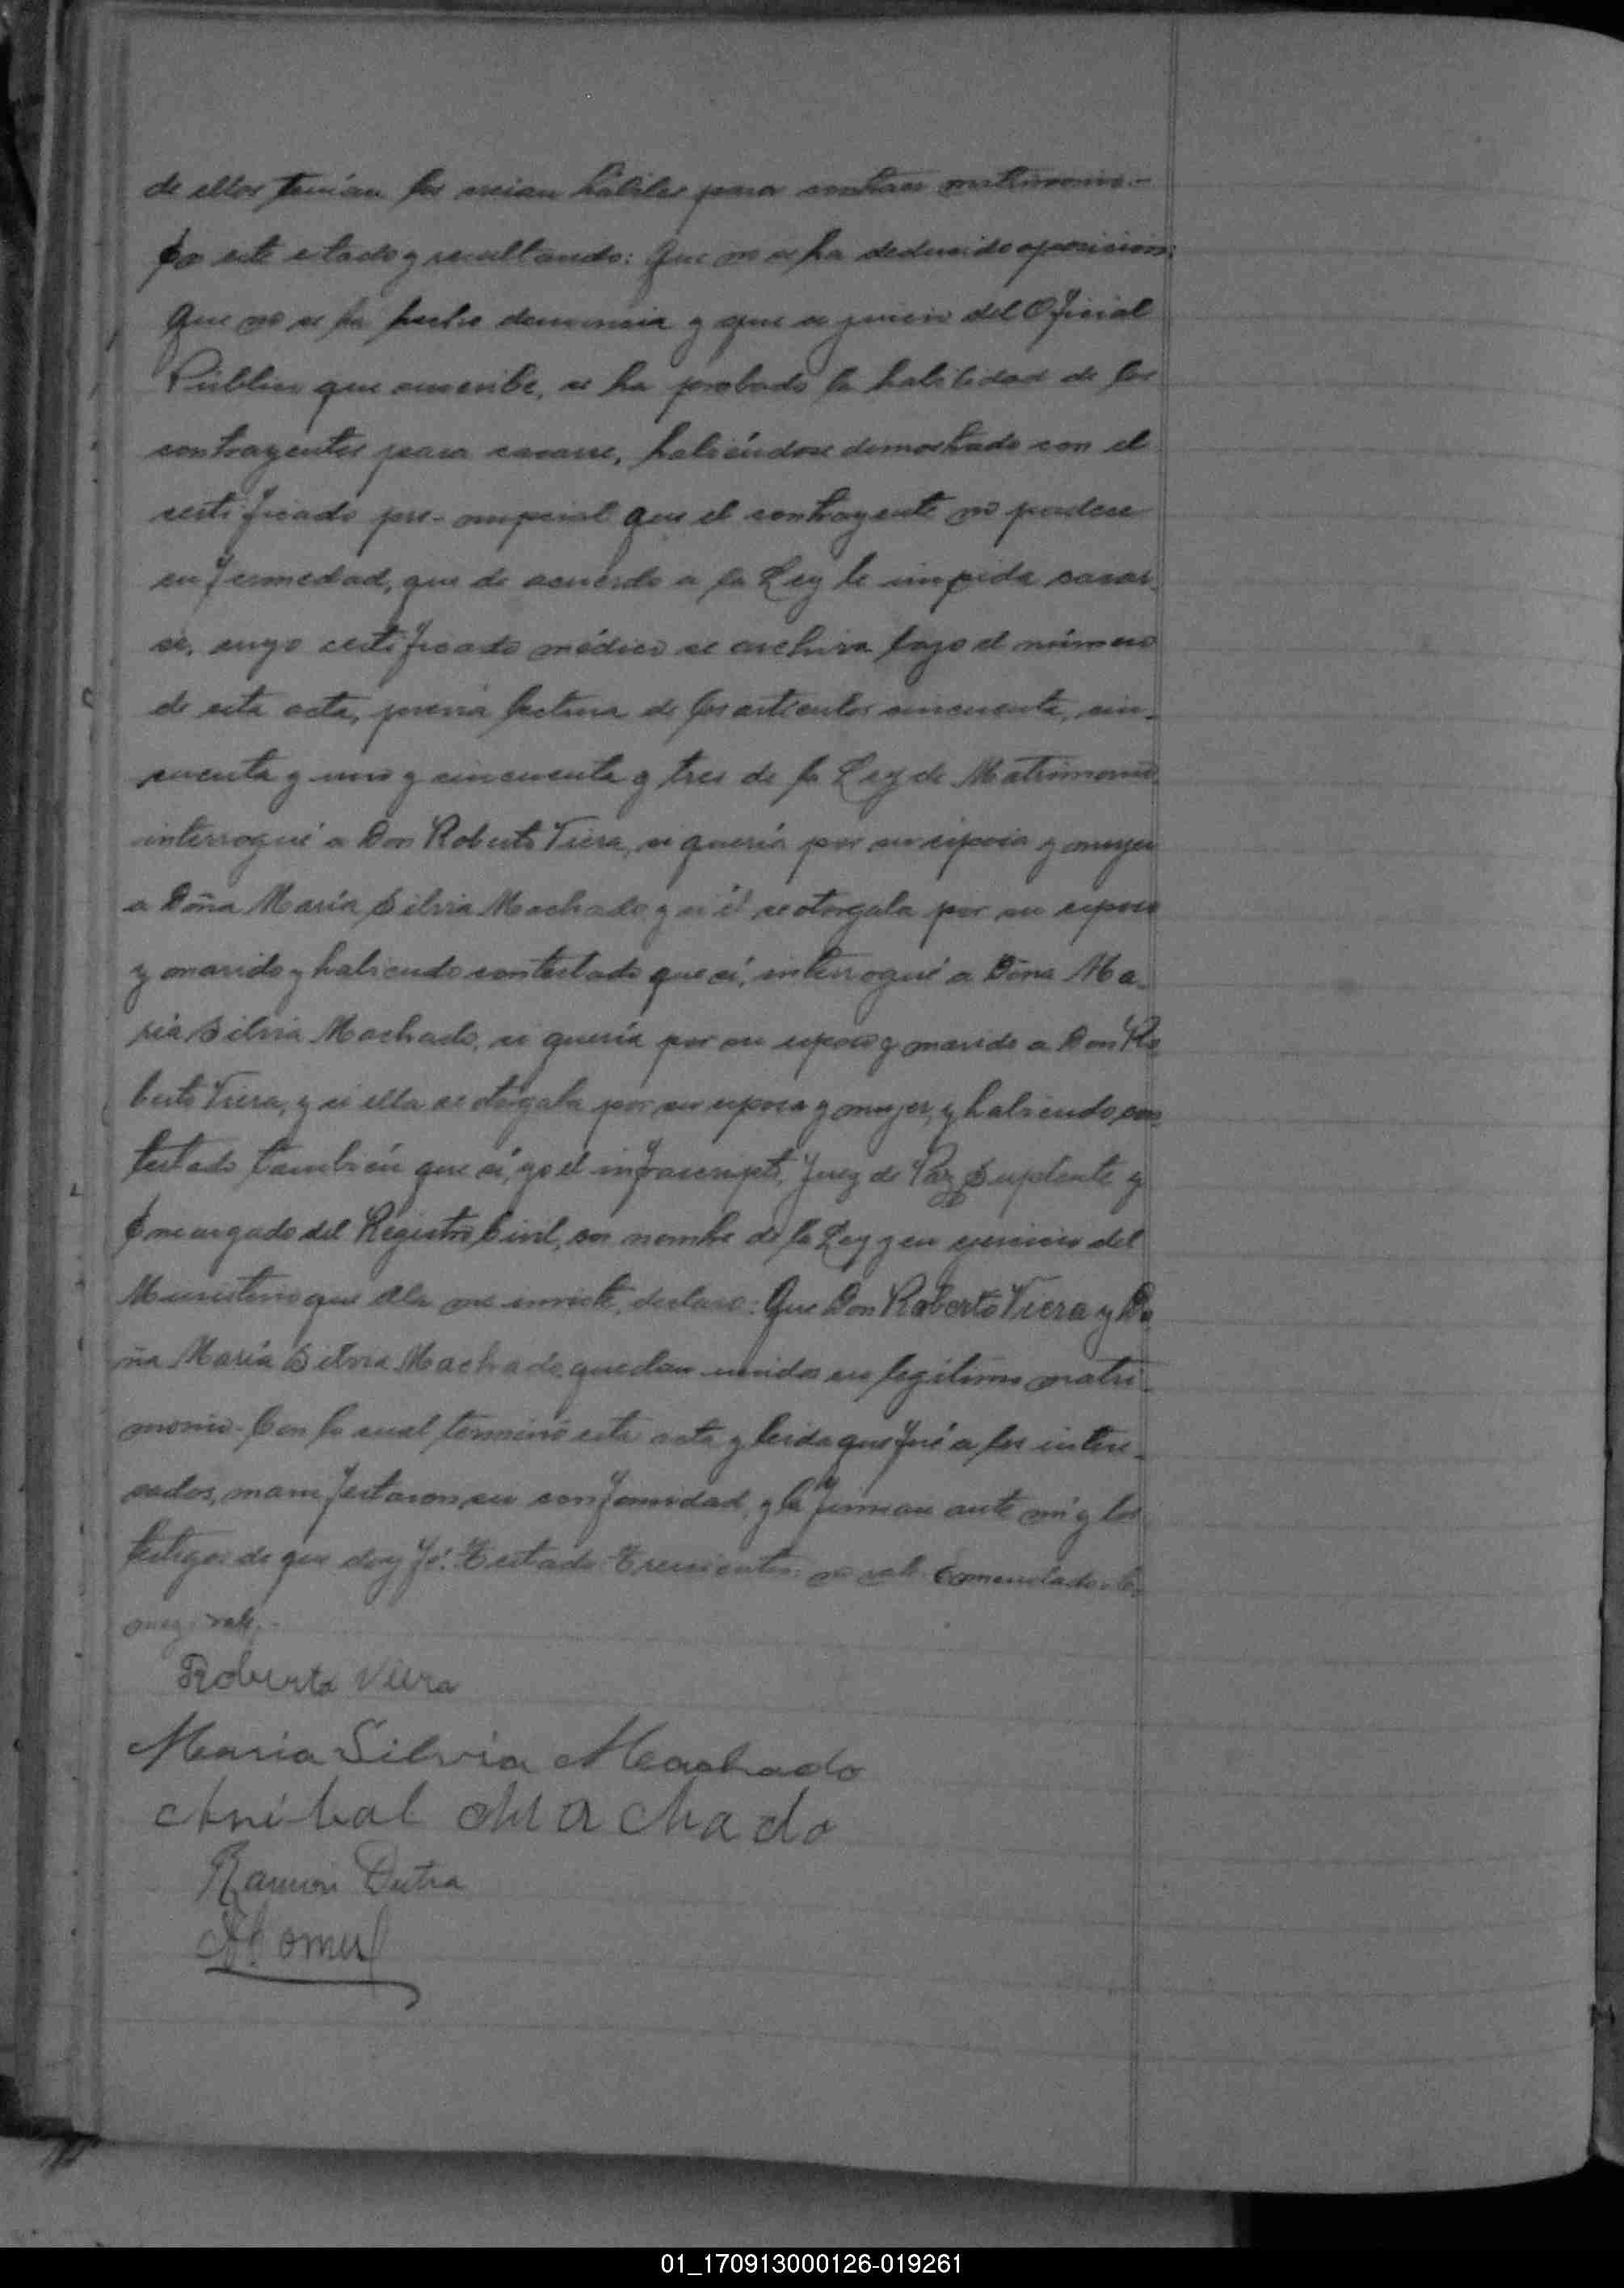 de ellos tenían los creian hábiles para contraer matrimonio.-
En este estado y resultando: Que no se ha deducido oposicion;
Que no se ha hecho denuncia y que a juicio del Oficial
Público que suscribe, se ha probado la habilidad de los
contrayentes para casarse, habiéndose demostrado con el
certificado pre-nupcial que el contrayente no padece
enfermedad, que de acuerdo a la Ley le impida casar-
se, cuyo certificado médico se archiva bajo el número
de esta acta, previa lectura de los artículos cincuenta, cin-
cuenta y uno y cincuenta y tres de la Ley de Matrimonio
interrogué a Don Roberto Viera, si quería por su esposa y mujer
a Doña María Silvia Machado, y si él se otorgaba por su esposo
y marido y habiendo contestado que sí, interrogué a Doña Ma-
ría Silvia Machado, si quería por su esposo y marido a Don Ro
berto Viera, y si ella se otorgaba por su esposa y mujer, y habiendo con-
testado también que sí, yo el infrascripto, Juez de Paz Suplente y
Encargado del Registro Civil, en nombre de la Ley y en ejercicio del
Ministerio que ella me inviste, declaro: Que Don Roberto Viera y Do
ña María Silvia Machado, quedan unidos en legítimo matri-
monio- Con lo cual terminó esta acta y leida que fué a los intere-
sados, manifestaron su conformidad, y la firman ante mí y los
testigos de que doy fé. Testado: Trescientos: no vale. Enmendado:
vale.-
Roberto Viera
Maria Silvia Machado
Anibal Machado
Ramón Dutra